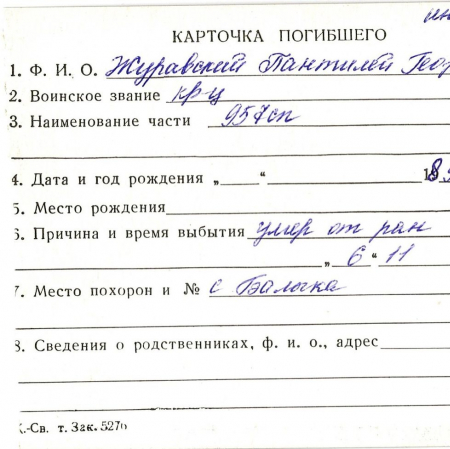 КАРТОЧКА ПОГИБШЕГО
1. Ф. И. О. Журавский Пантилей Геор
2. Воинское звание кр-ц
3. Наименование части 957сп
4. Дата и год рождения „ “ 18
5. Место рождения
6. Причина и время выбытия умер от ран
„ 6 “ 11
7. Место похорон и № с Балыка
8. Сведения о родственниках, ф. и. о., адрес
.-Св. т. Зак. 5276